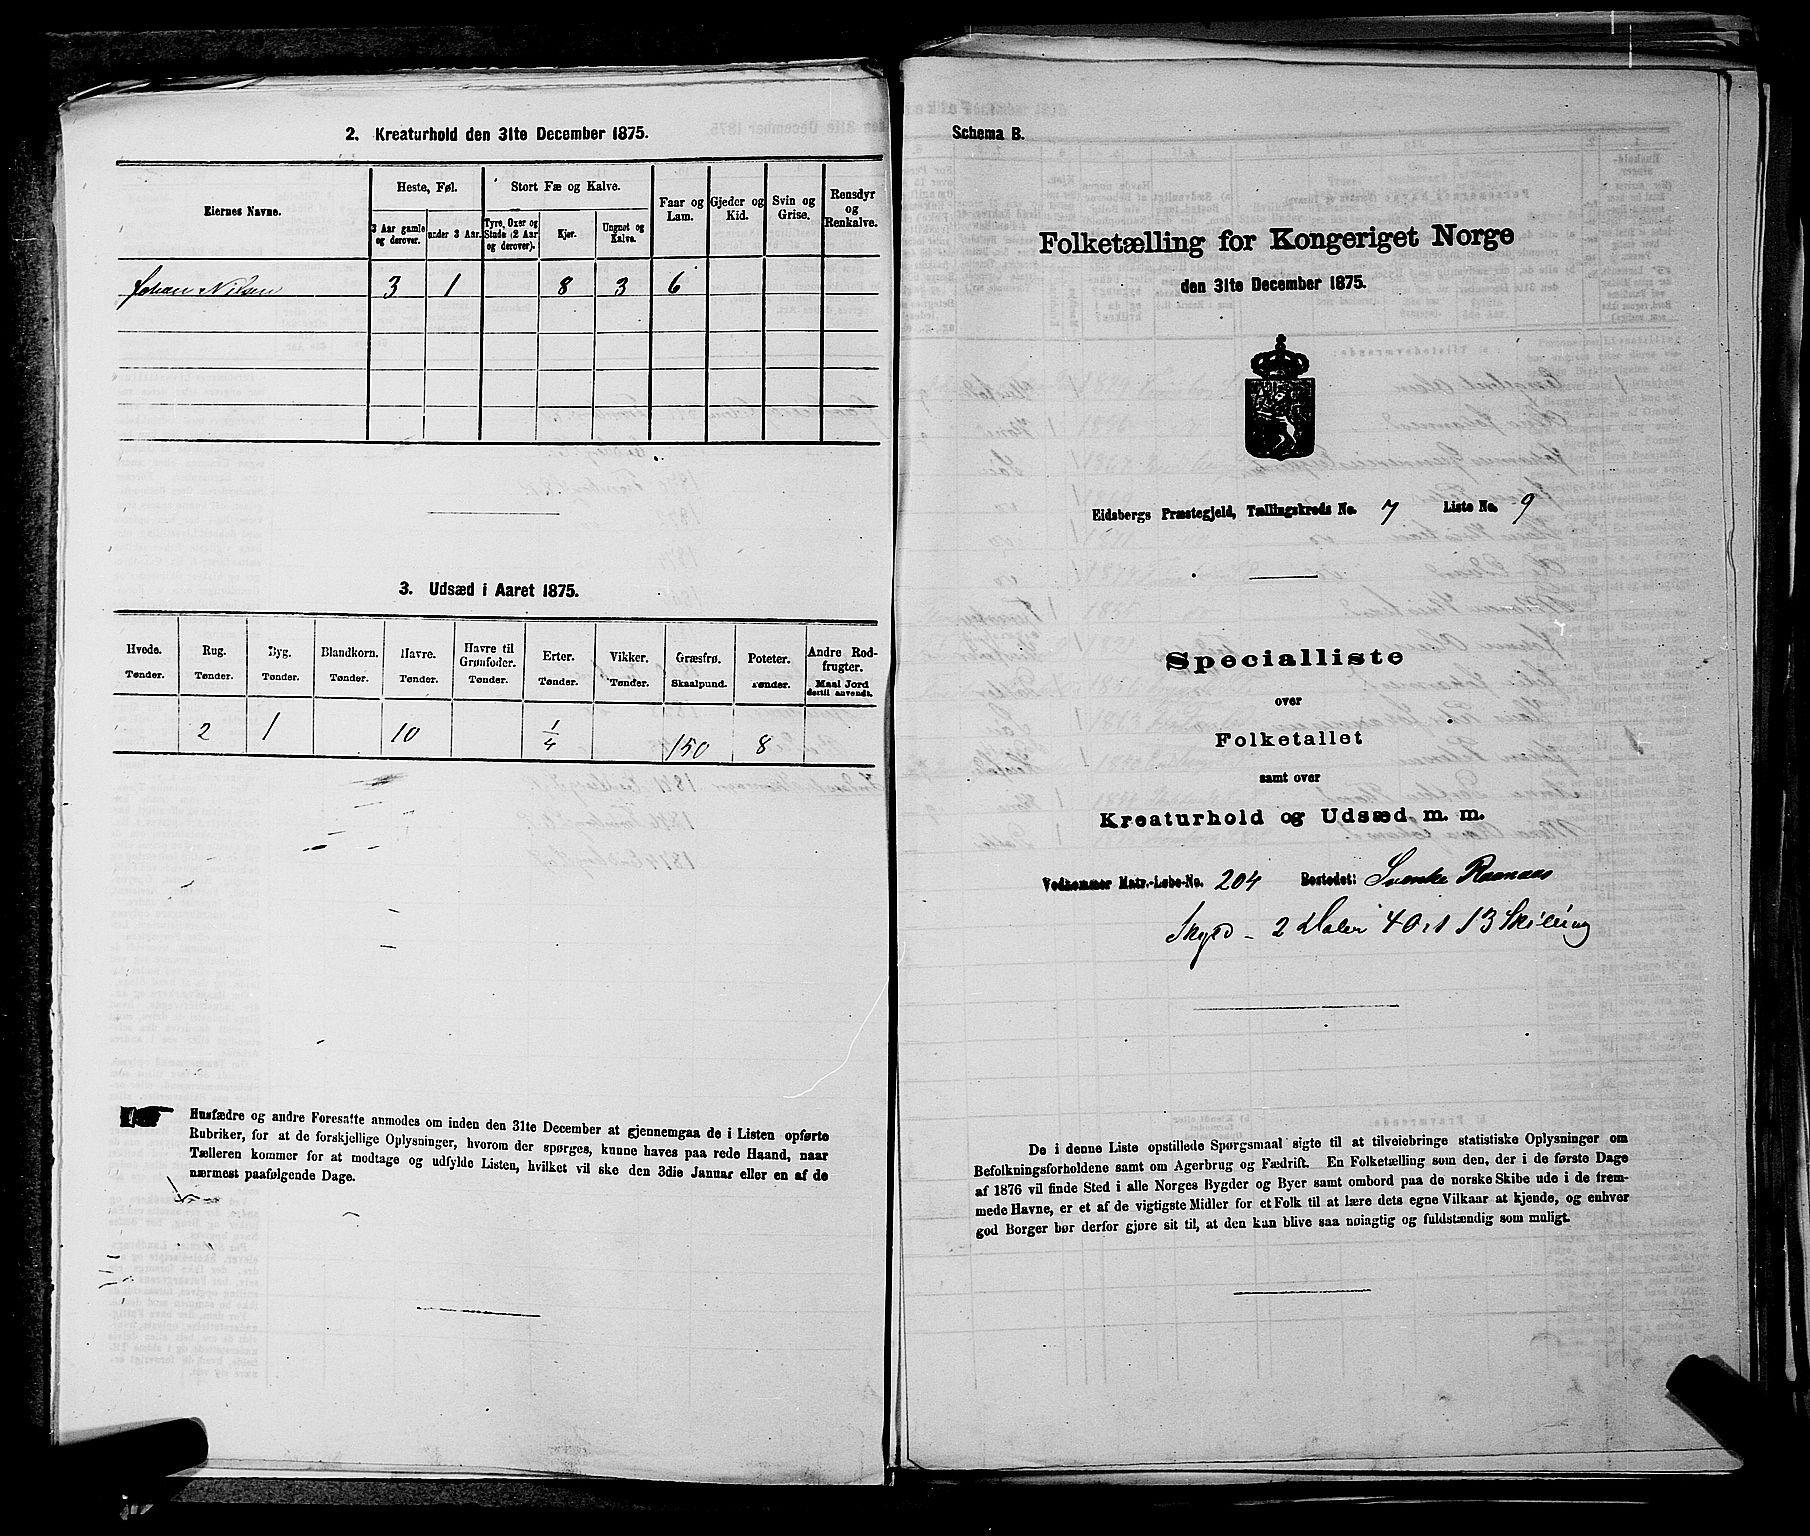 2. Kreaturhold den 31te December 1875.
Eiernes Navne.
Heste, Føl.
Stort Fæ og Kalve.
Faar og Lam.
Gjeder og Kid.
Svin og Grise.
Rensdyr og Renkalve.
3 Aar gamle og derover.
under 3 Aar.
Tyre, Oxer og Stude (2 Aar og derover).
Kjør.
Ungnøt og Kalve.
Johan Nilsen 3 1 8 3 6
3. Udsæd i Aaret 1875.
Hvede. Rug. Byg. Blandkorn. Havre. Havre til Grønfoder. Erter. Vikker. Græsfrø. Poteter. Andre Rodfrugter.
Tønder. Tønder. Tønder. Tønder. Tønder. Tønder. Tønder. Tønder. Skaalpund. Tønder. Maal Jord dertil anvendt.
2 1 10 1/4 150 8
Husfædre og andre Foresatte anmodes om inden den 31te December at gjennemgaa de i Listen opførte
Rubriker, for at de forskjellige Oplysninger, hvorom der spørges, kunne haves paa rede Haand, naar
Tælleren kommer for at modtage og udfylde Listen, hvilket vil ske den 3die Januar eller en af de
nærmest paafølgende Dage.
Schema B.
Folketælling for Kongeriget Norge
den 31te December 1875.
Eidsbergs Præstegjeld, Tællingskreds No. 7 Liste No. 9
Specialliste
over
Folketallet
samt over
Kreaturhold og Udsæd m. m.
Vedkommer Matr.-Løbe-No. 204 Bostedet: Svenke Raanaas
Skyld - 2 Daler 4 Ort 13 Skilling
De i denne Liste opstillede Spørgsmaal sigte til at tilveiebringe statistiske Oplysninger om
Befolkningsforholdene samt om Agerbrug og Fædrift. En Folketælling som den, der i de første Dage
af 1876 vil finde Sted i alle Norges Bygder og Byer samt ombord paa de norske Skibe ude i de frem-
mede Havne, er et af de vigtigste Midler for et Folk til at lære dets egne Vilkaar at kjende, og enhver
god Borger bør derfor gjøre sit til, at den kan blive saa nøiagtig og fuldstændig som muligt.